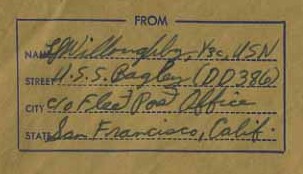 FROM
NAME L J Willoughby, Y3c, USN
STREET U.S.S. Bagley (DD386)
CITY c/o Fleet Post Office
STATE San Francisco, Calif.